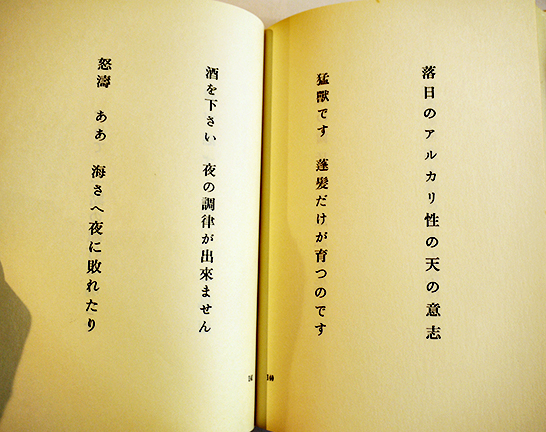 落日のアルカリ性の天の意志
猛獸です　蓬髮だけが育つのです
140
酒を下さい　夜の調律が出來ません
怒濤　ああ　海さへ夜に敗れたり